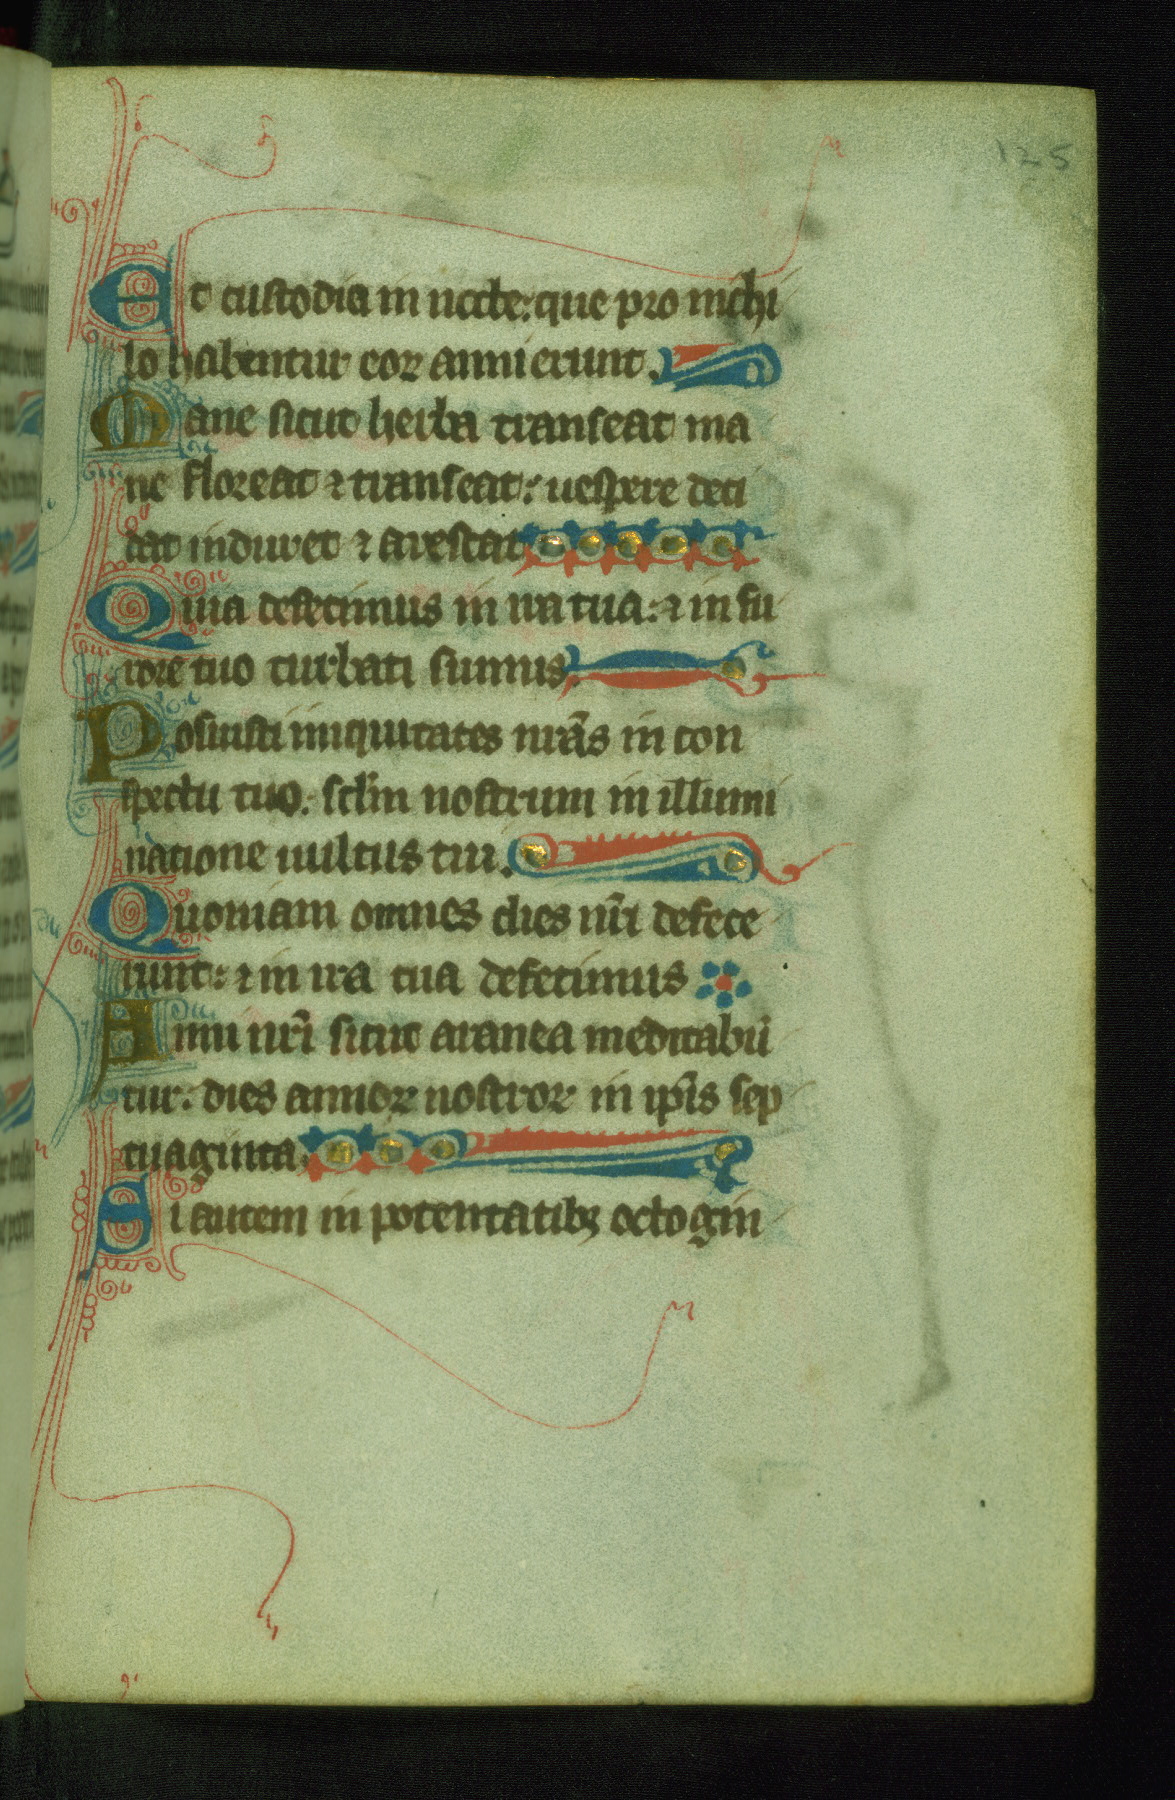 125
Et custodia in nocte: que pro nichi
lo habentur eoꝝ anni erunt.
Mane sicut herba transeat ma
ne floreat ⁊ transeat: uespere deci
dat induret ⁊ arescat
Quia defecimus in ira tua: ⁊ in fu
rore tuo turbati sumus.
Posuisti iniquitates nr̄as in con
spectu tuo. sclm̄ nostrum in illumi
natione uultus tui.
Quoniam omnes dies nr̄i defece
runt: ⁊ in ira tua defecimus
Anni nr̄i sicut aranea meditabū
tur. dies annoꝝ nostroꝝ in ip̄is sep
tuaginta.
Si autem in potentatibꝫ octogin